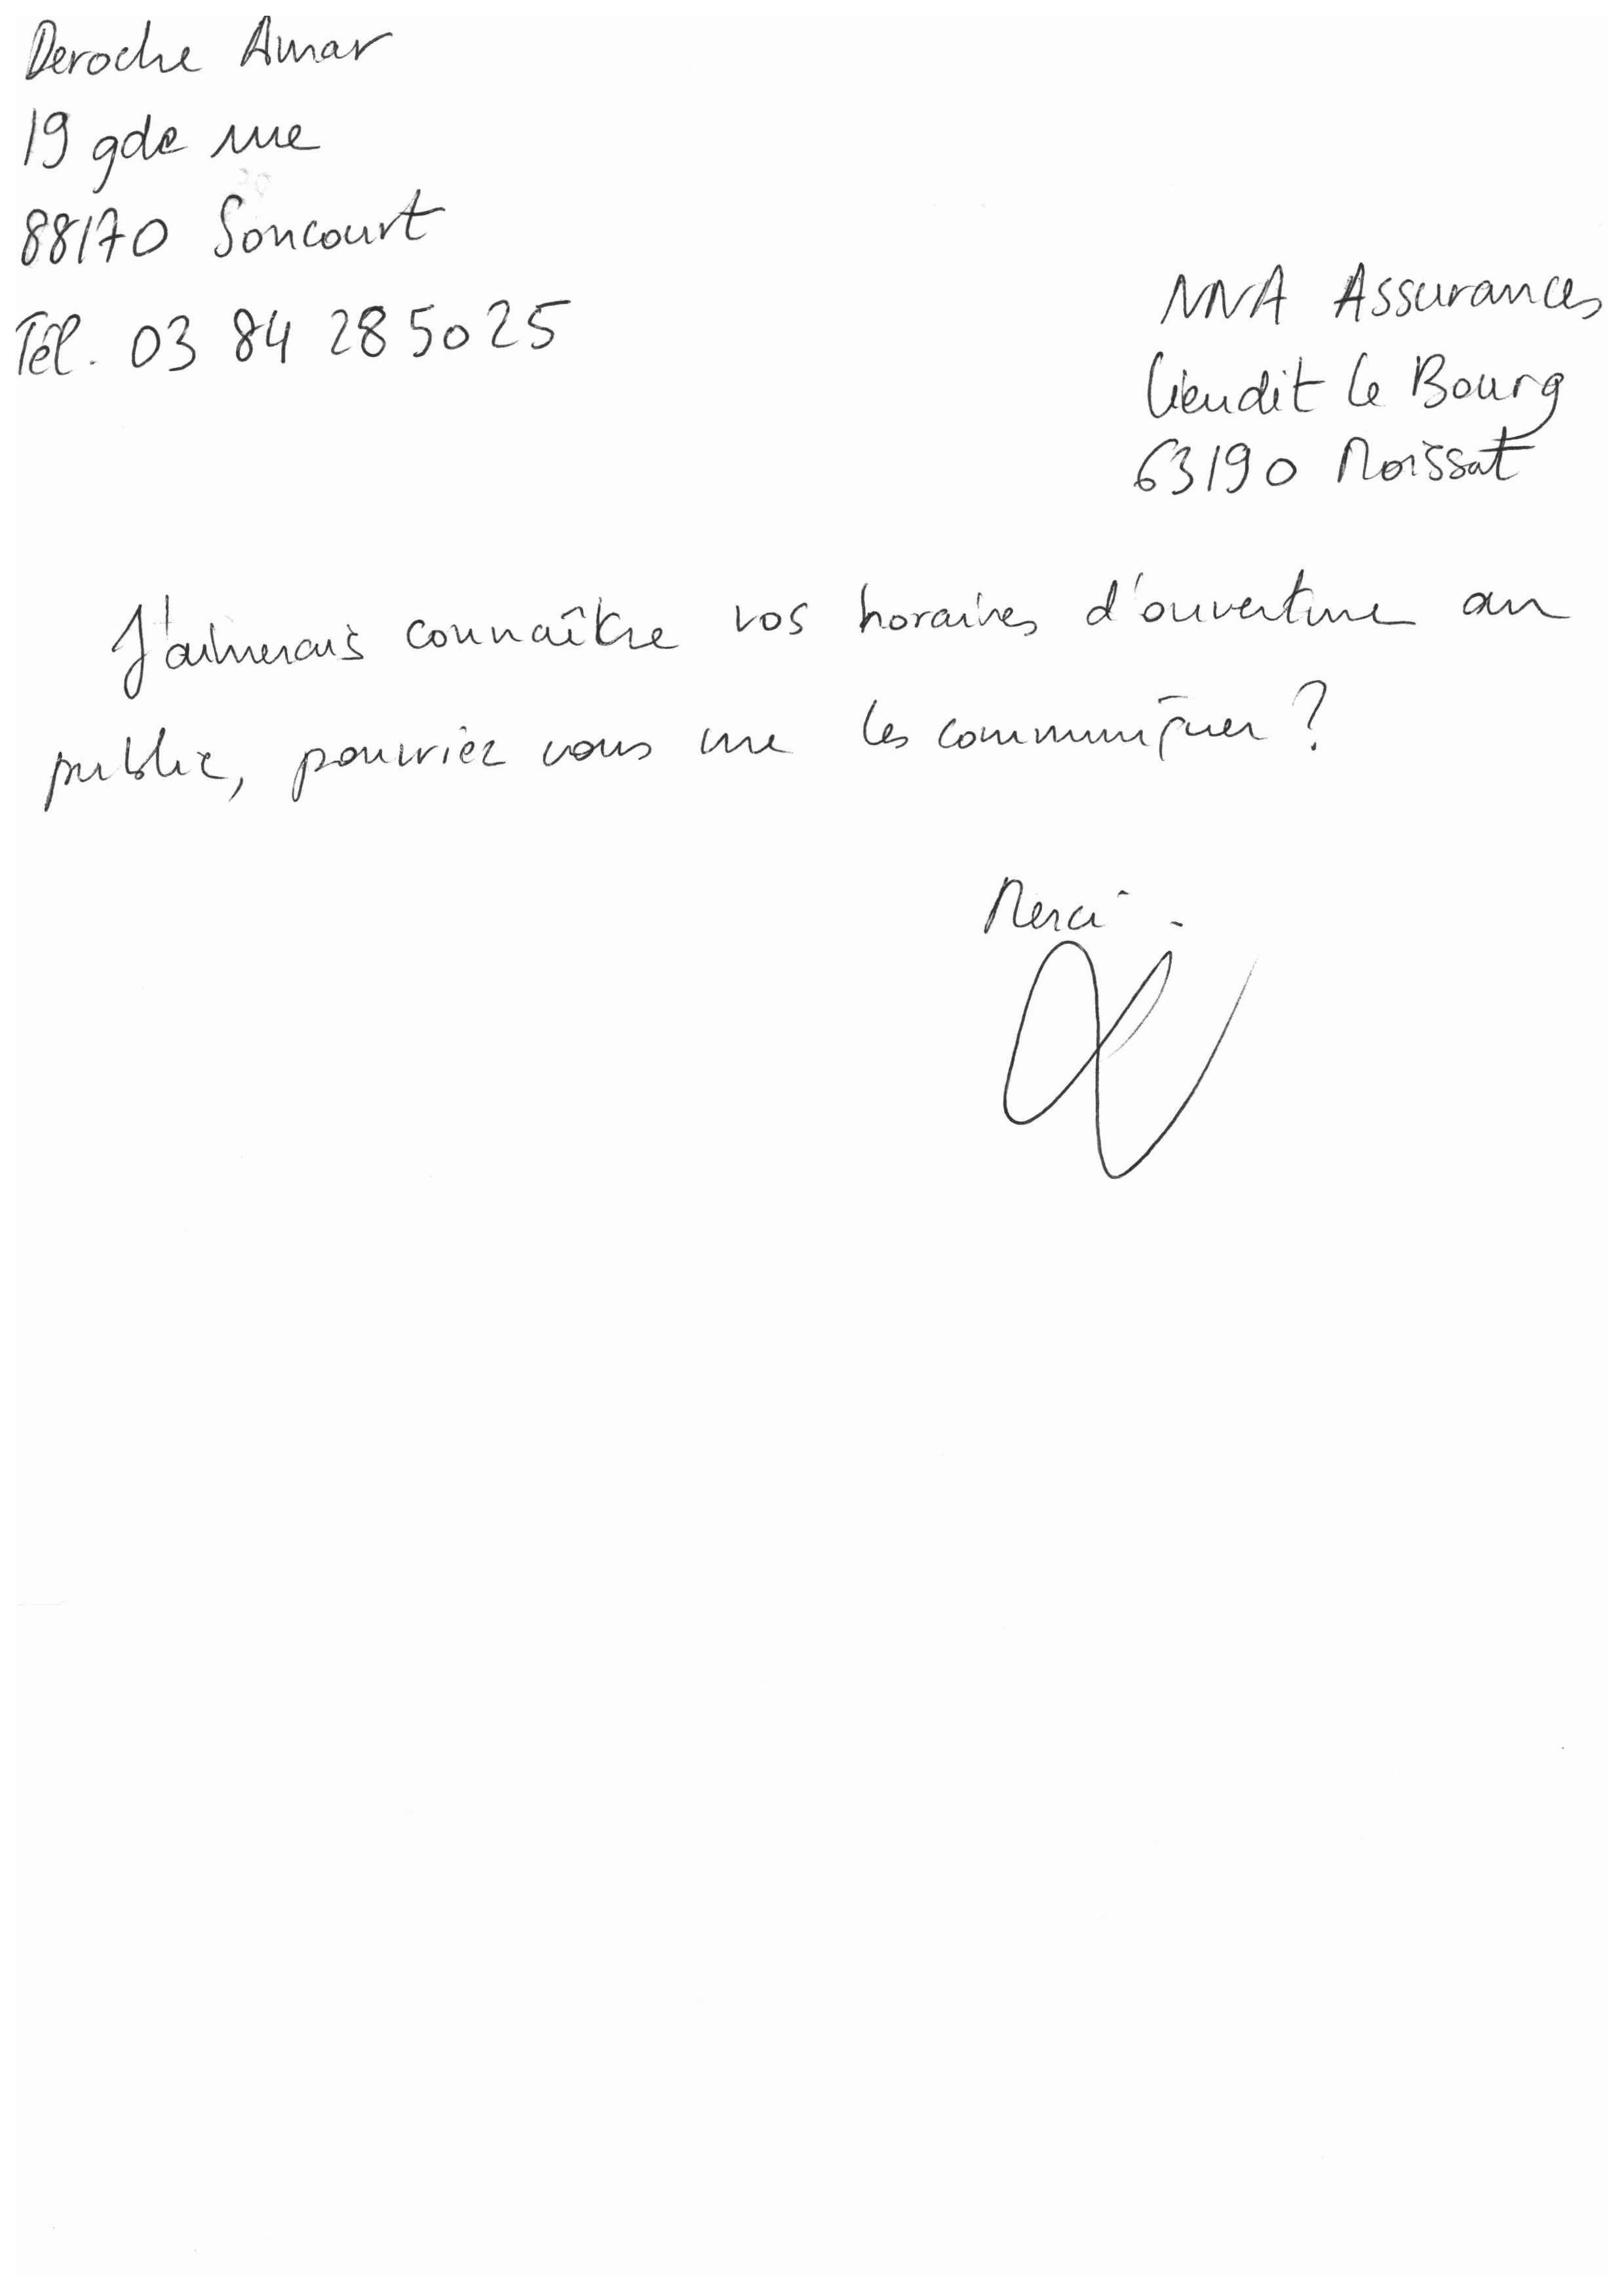 Deroche Amar
19 gde rue
88170 Soncourt
Tél. 03 84 28 50 25
MNA Assurances
Lieudit Le Bourg
63190 Moissat
J'aimerais connaître vos horaires d'ouverture au
public, pourriez vous me les communiquer ?
Merci.